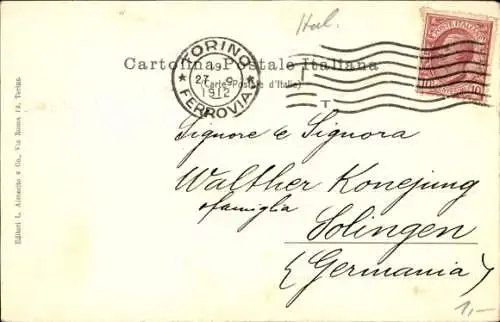 Ital.
POSTE ITALIANE
10
TORINO
19
27 9
1912
FERROVIA
T
Cartolina Postale Italiana
(Carte Postale d'Italie)
Signore e Signora
Walther Konejung
e famiglia
Solingen
(Germania)
1,-
Editori L. & Co., Via Roma Torino.